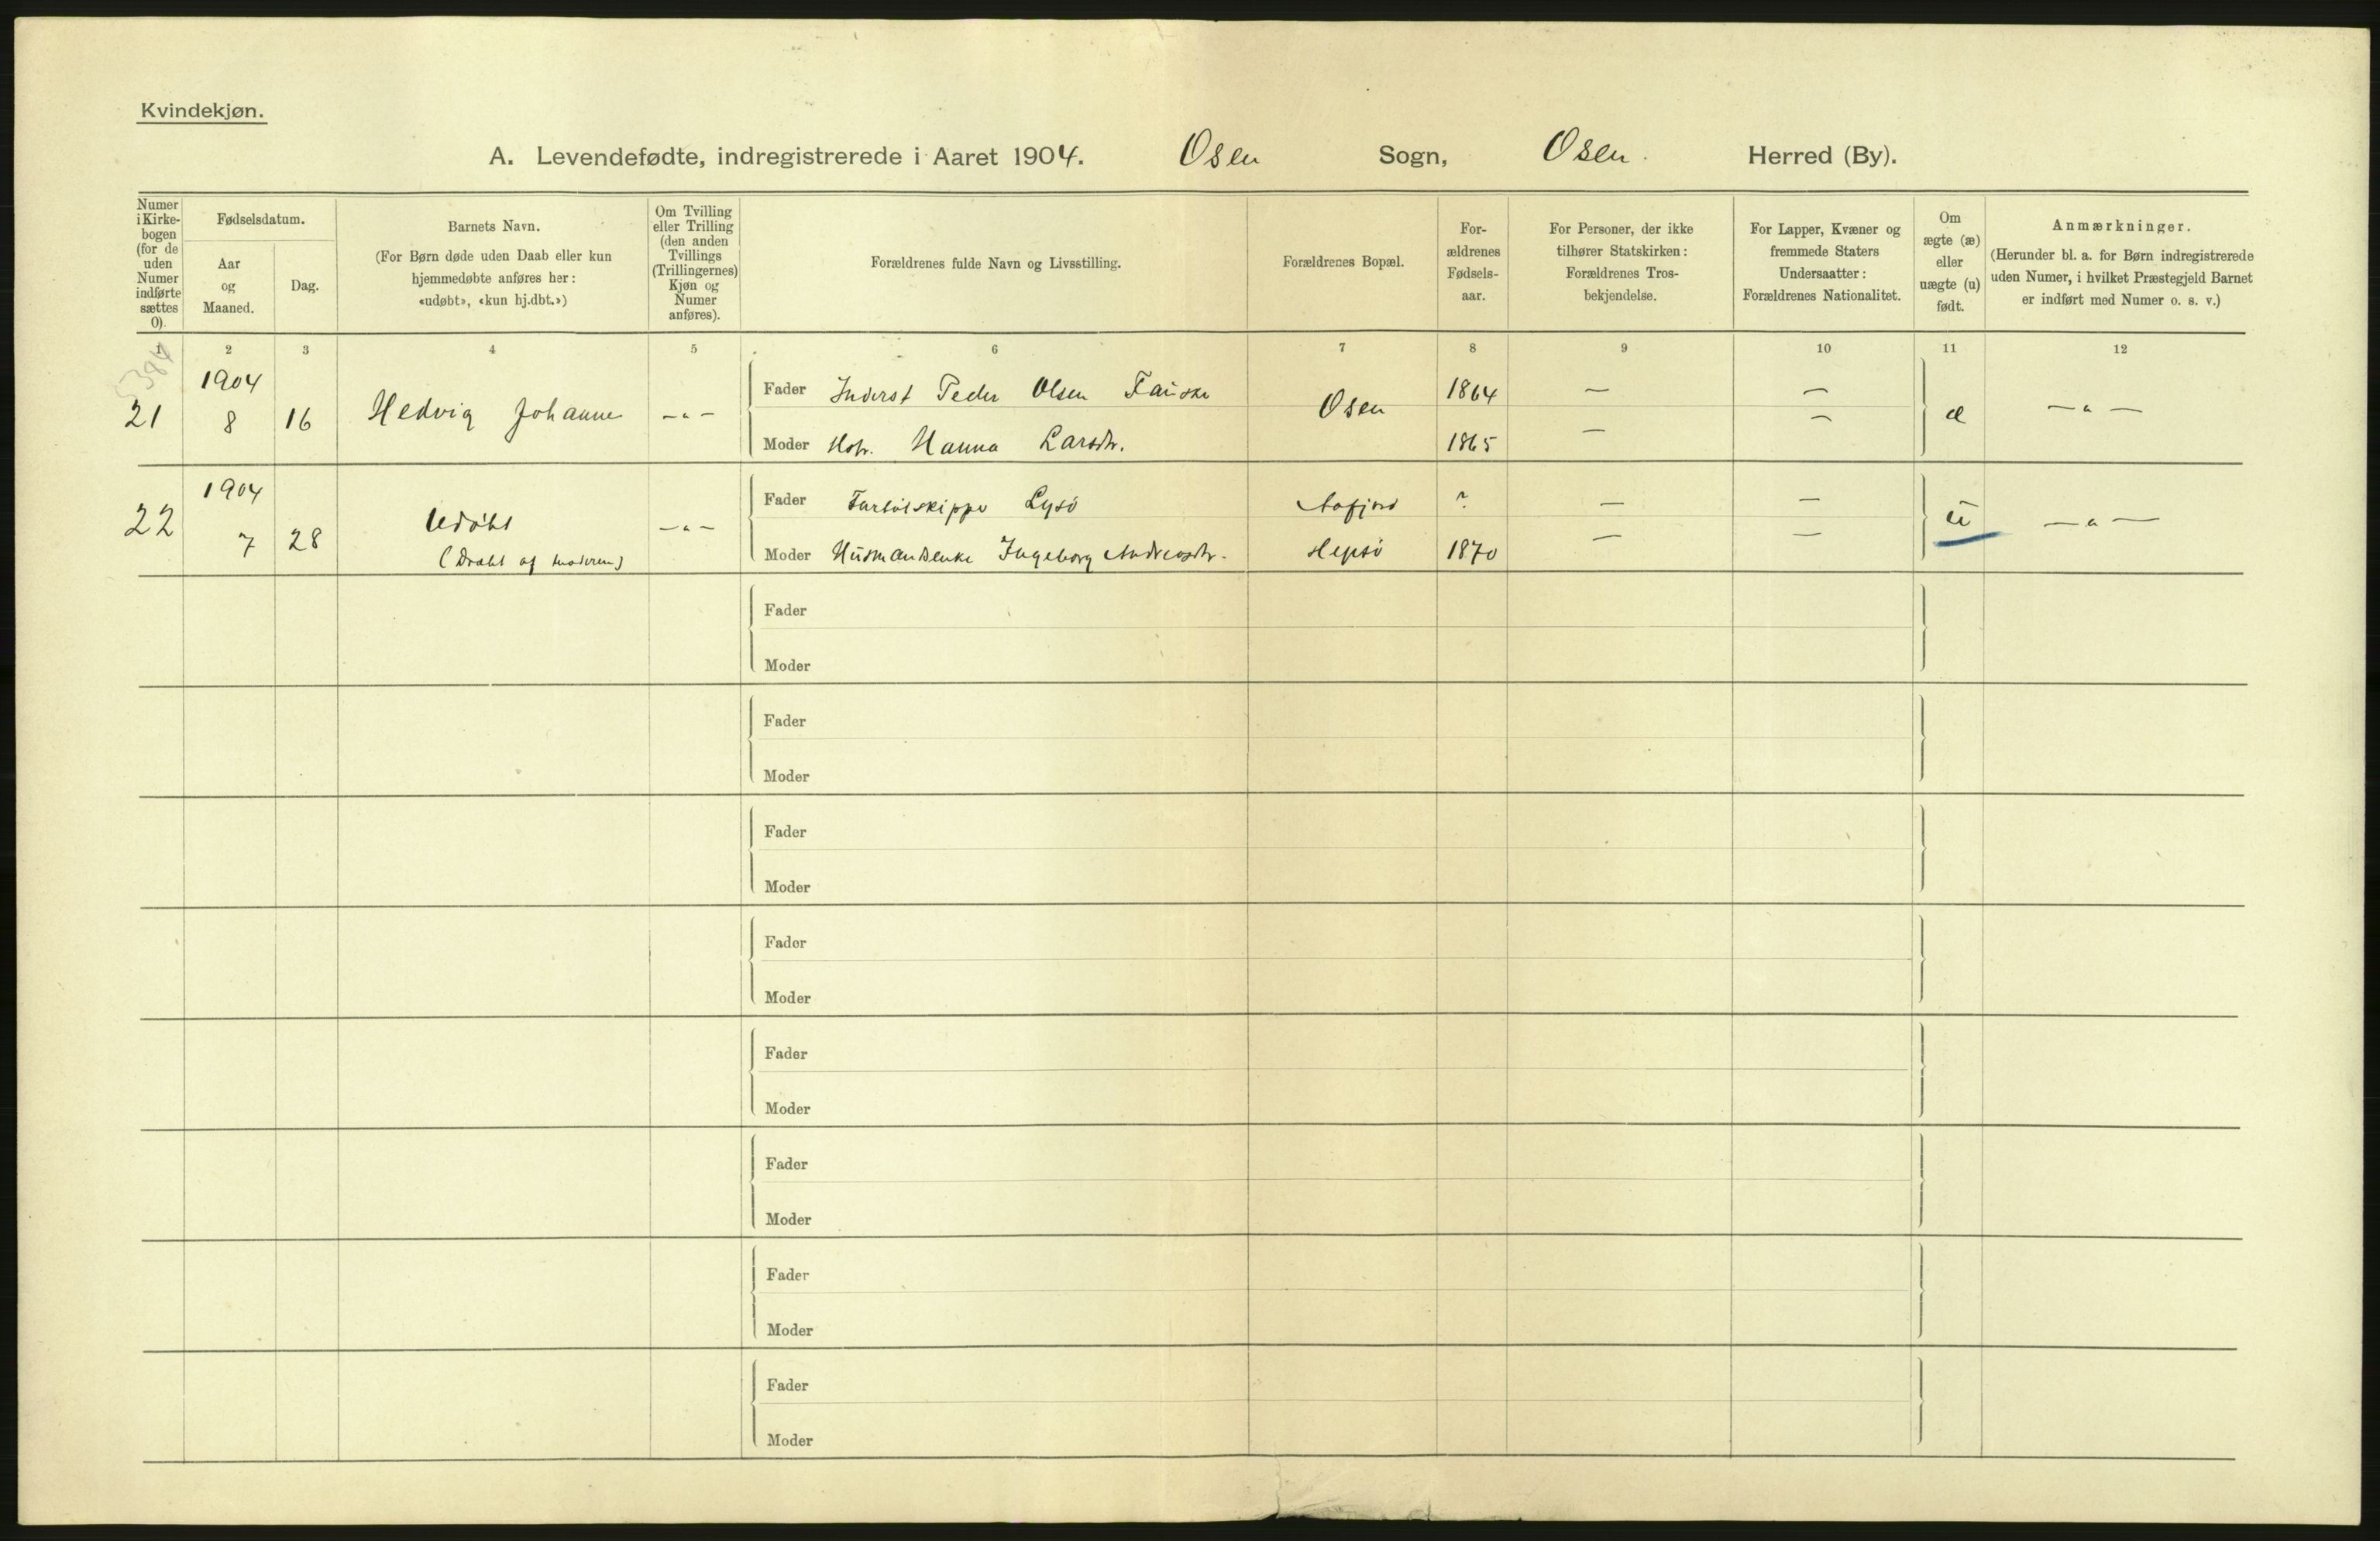 Kvindekjøn.
A. Levendefødte, indregistrerede i Aaret 1904. Osen Sogn, Osen. Herred (By).
Numer i Kirke-bogen (for de uden Numer indførte sættes 0).
Fødselsdatum.
Aar og Maaned.
Dag.
Barnets Navn.
(For Børn døde uden Daab eller kun
hjemmedøbte anføres her:
«udøbt», «kun hj.dbt.»)
Om Tvilling
eller Trilling
(den anden
Tvillings
(Trillingernes)
Kjøn og
Numer
anføres).
Forældrenes fulde Navn og Livsstilling.
Forældrenes Bopæl.
For-
ældrenes
Fødsels-
aar.
For Personer, der ikke
tilhører Statskirken:
Forældrenes Tros-
bekjendelse.
For Lapper, Kvæner og
fremmede Staters
Undersaatter:
Forældrenes Nationalitet.
Om
ægte (æ)
eller
uægte (u)
født.
Anmærkninger.
(Herunder bl. a. for Børn indregistrerede
uden Numer, i hvilket Præstegjeld Barnet
er indført med Numer o. s. v.)
1 2 3 4 5 6 7 8 9 10 11 12
21 1904 8 16 Hedvig Johanne — " —
Fader Inderst Peder Olsen Fauske Osen 1864 — — æ — " —
Moder Hstr. Hanna Larsdtr. 1865 — —
22 1904 7 28 Udøbt — " —
(Dræbt af moderen)
Fader Lysö Aafjord ? — — u — " —
Moder Husmandsenke Ingeborg Andreasdtr. Hepsö 1870 — —
Fader
Moder
Fader
Moder
Fader
Moder
Fader
Moder
Fader
Moder
Fader
Moder
Fader
Moder
Fader
Moder